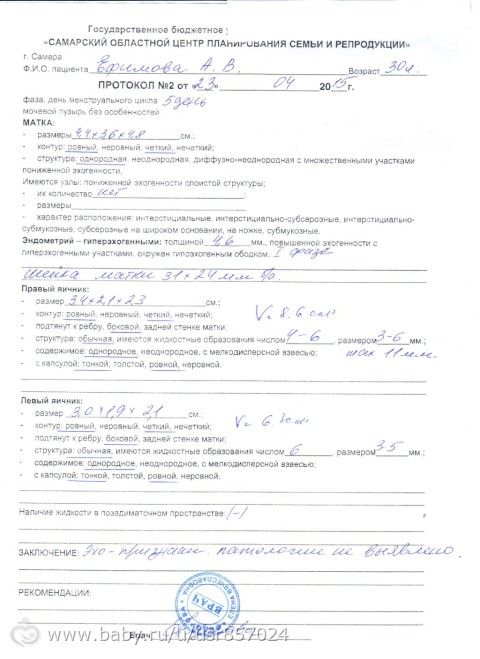 Государственное бюджетное
«САМАРСКИЙ ОБЛАСТНОЙ ЦЕНТР ПЛАНИРОВАНИЯ СЕМЬИ И РЕПРОДУКЦИИ»
г. Самара
Ф.И.О. пациента Ефимова А. В. Возраст 30л.
ПРОТОКОЛ №2 от «23» 04 2015г.
фаза, день менструального цикла 5день
мочевой пузырь без особенностей
МАТКА:
- размеры 44х36х48 см.;
- контур: ровный, неровный, четкий, нечеткий;
- структура: однородная, неоднородная, диффузно-неоднородная с множественными участками
пониженной эхогенности,
Имеются узлы: пониженной эхогенности слоистой структуры;
- их количество нет ;
- размеры
- характер расположения: интерстициальные, интерстициально-субсерозные, интерстициально-
субмукозные, субсерозные на широком основании, на ножке, субмукозные.
Эндометрий – гиперэхогенными: толщиной 4,6 мм., повышенной эхогенности с
гиперэхогенными участками, окружен гипоэхогенным ободком. I фаза
Шейка матки 31х24мм
Правый яичник:
- размер 34х21х23 см.;
- контур: ровный, неровный, четкий, нечеткий; V= 8.6 см
- подтянут к ребру, боковой, задней стенке матки;
- структура: обычная, имеются жидкостные образования числом 4-6 , размером 3-6 мм.;
- содержимое: однородное, неоднородное, с мелкодисперсной взвесью; max 11мм.
- с капсулой: тонкой, толстой, ровной, неровной.
Левый яичник:
- размер 30х19х21 см.;
- контур: ровный, неровный, четкий, нечеткий; V= 6.
- подтянут к ребру, боковой, задней стенке матки;
- структура: обычная, имеются жидкостные образования числом 6 , размером 35 мм.;
- содержимое: однородное, неоднородное, с мелкодисперсной взвесью;
- с капсулой: тонкой, толстой, ровной, неровной.
Наличие жидкости в позадиматочном пространстве: (-)
ЗАКЛЮЧЕНИЕ: Эхо-признаки патологии не выявлено.
РЕКОМЕНДАЦИИ:
ЕЛЕНА ВЯЧЕСЛАВОВНА
ВРАЧ
Врач
www.baby.ru/u/usr857024